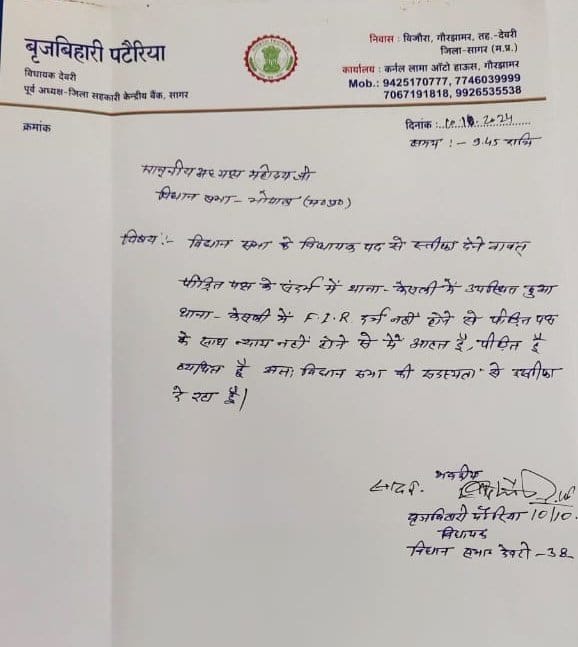 बृजबिहारी पटैरिया
विधायक देवरी
पूर्व अध्यक्ष-जिला सहकारी केन्द्रीय बैंक, सागर
निवास : बिजौरा, गौरझामर, तह.-देवरी
जिला-सागर (म.प्र.)
कार्यालय : कर्नल लामा ऑटो हाऊस, गौरझामर
Mob.: 9425170777, 7746039999
7067191818, 9926535538
क्रमांक
दिनांक :..10.10.2024
समय :- 9.45 रात्रि
माननीय अध्यक्ष महोदय जी
विधान सभा - भोपाल (म०प्र०)
विषय :- विधान सभा के विधायक पद से स्तीफा देने बावत्
पीड़ित पक्ष के संदर्भ में थाना - केसली में उपस्थित हुआ
थाना - केसली में F.I.R दर्ज नहीं होने से पीड़ित पक्ष
के साथ न्याय नहीं होने से मैं आहत हूँ, पीड़ित हूँ
व्यथित हूँ अतः विधान सभा की सदस्यता से स्तीफा
दे रहा हूँ।
सादर. भवदीय
बृजबिहारी पटैरिया 10/10.
विधायक
विधान सभा देवरी - 38